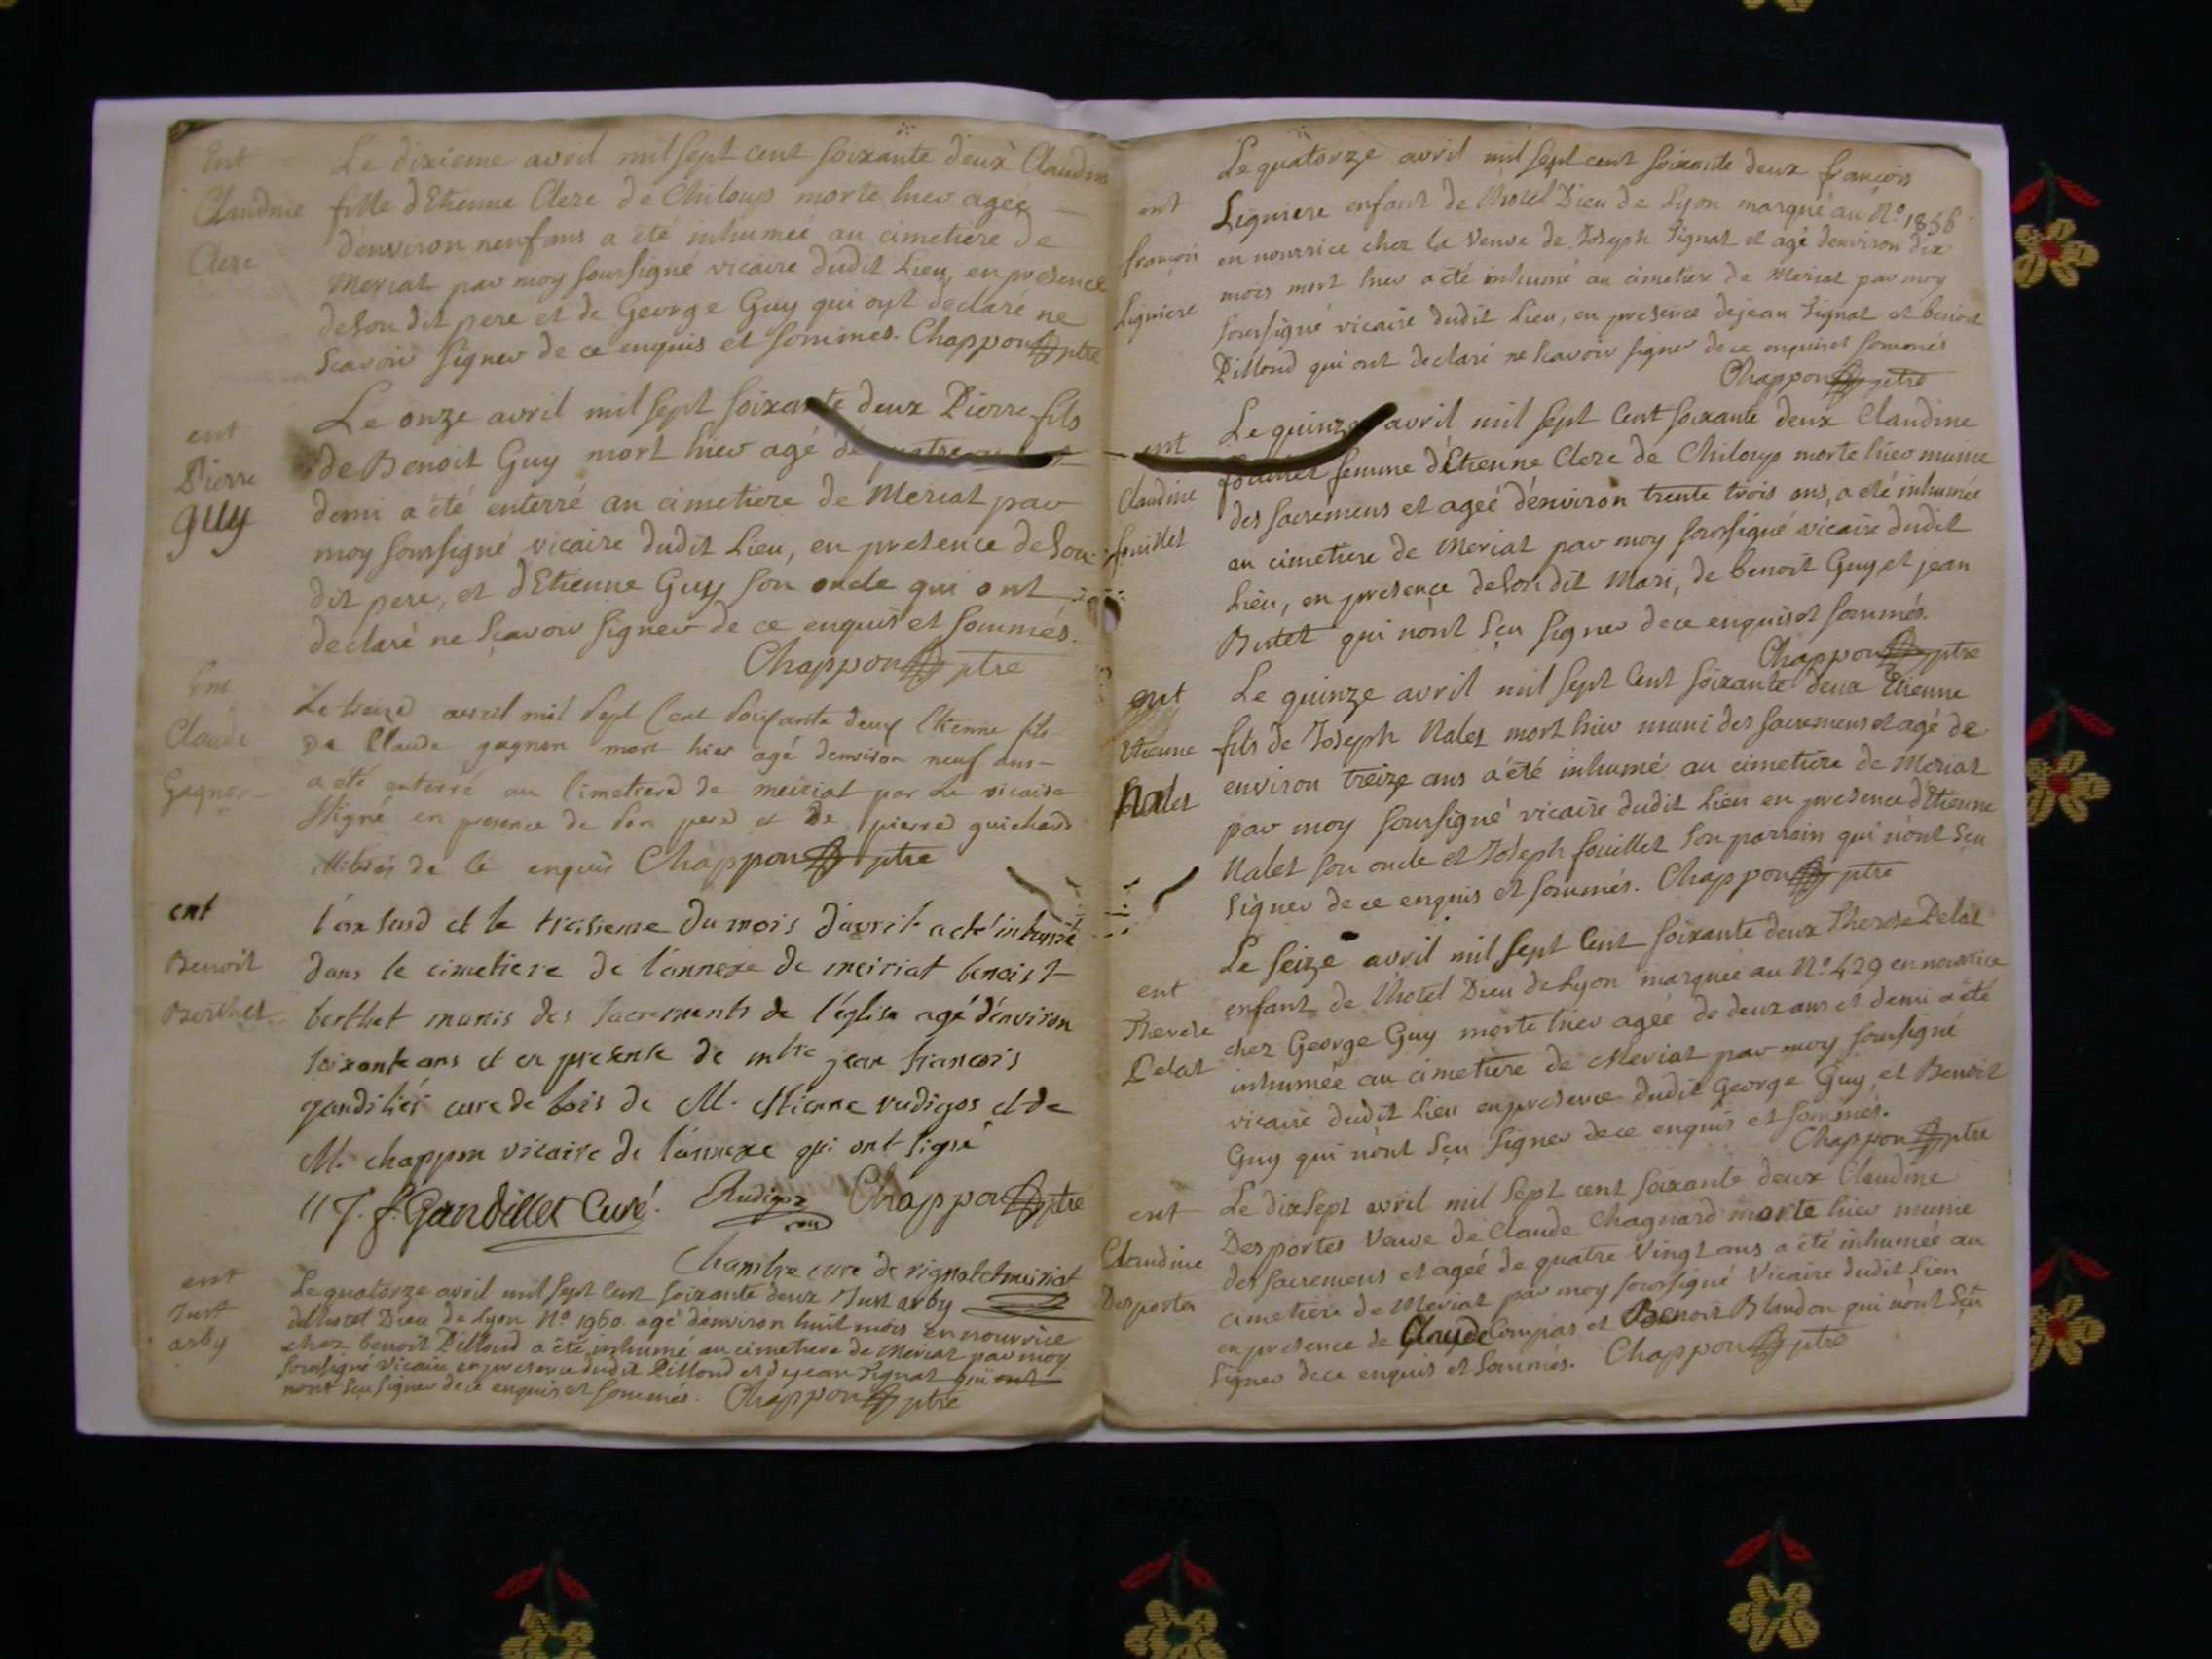 Ent
Claudine
Clerc
Le dixieme avril mil sept cent soixante deux Claudine
fille d'Etienne Clerc de Chiloup morte hier agée
d'environ neuf ans a été inhumée au cimetiere de
Meriat par moy soussigné vicaire dudit Lieu, en presence
de son dit pere et de George Guy qui ont declaré ne
scavoir signer de ce enquis et sommés. Chappon ptre
ent
Pierre
Guy
Le onze avril mil sept soixante deux Pierre fils
de Benoit Guy mort hier agé de
demi a été enterré au cimetiere de Meriat par
moy soussigné vicaire dudit Lieu, en presence de son
dit pere, et d'Etienne Guy son oncle qui ont
declaré ne scavoir signer de ce enquis et sommés.
Chappon ptre
Ent
Claude
Gagnon
Le treize avril mil sept cent soixante deux Etienne fils
De Claude gagnon mort hier agé denviron neuf ans
a été enterré au cimetiere de meiriat par le vicaire
signé en presence de son pere et De pierre guichard
illitérés de ce enquis Chappon ptre
ent
Benoit
Berthet
l'an susd et le treisieme du mois d'avril a eté inhumé
dans le cimetiere de l'annexe de meiriat benoist
berthet munis des sacrements de l'église agé d'environ
soixante ans et en presense de mtre jean francois
gandilier cure de bois de M. etienne rudigos et de
M. chappon vicaire de l'annexe qui ont signé
J. f. Gandillet Curé. Rudigoz Chappon ptre
Chambre cure de rignat et meiriat
ent
Just
arby
Le quatorze avril mil sept cent soixante deux Just arby
de l'hotel Dieu de Lyon No 1960. agé d'environ huit mois en nourrice
chez benoit Pillond a été inhumé au cimetiere de Meriat par moy
soussigné vicaire en presence dudit Pillond et de jean Tignat qui ont
nont sçu signer de ce enquis et sommés. Chappon ptre
ent
françois
Ligniere
Le quatorze avril mil sept cent soixante deux françois
Ligniere enfant de l'hotel Dieu de Lyon marqué au No 1856
en nourrice chez la veuve de Joseph Tignat et agé denviron dix
mois mort hier a été inhumé au cimetiere de Meriat par moy
soussigné vicaire dudit Lieu, en presence de jean Tignat et benoit
Pillond qui ont declaré ne scavoir signer de ce enquis et sommés
Chappon ptre
ent
Claudine
fouillet
Le quinze avril mil sept Cent soixante deux Claudine
fouillet femme d'Etienne Clerc de Chiloup morte hier munie
des sacremens et ageé d'environ trente trois ans, a eté inhumée
au cimetiere de Meriat par moy soussigné vicaire dudit
Lieu, en presence de son dit Mari, de benoit Guy et jean
Butet qui n'ont sçu signer de ce enquis et sommés.
Chappon ptre
ent
Etienne
Nalet
Le quinze avril mil sept Cent soixante deux Etienne
fils de Joseph Nalet mort hier muni des sacremens et agé de
environ treize ans a été inhumé au cimetiere de Meriat
par moy soussigné vicaire dudit Lieu en presence d'Etienne
Nalet son oncle et Joseph fouillet son parrain qui n'ont sçu
signer de ce enquis et sommés. Chappon ptre
ent
Therese
Pelat
Le seize avril mil sept Cent soixante deux Therese Pelat
enfant de l'hotel Dieu de Lyon marquée au No 429 en nourrice
chez George Guy morte hier agée de deux ans et demi a été
inhumée au cimetiere de Meriat par moy soussigné
vicaire dudit Lieu en presence dudit George Guy, et Benoit
Guy qui n'ont sçu signer de ce enquis et sommés.
Chappon ptre
ent
Claudine
Desportes
Le dixsept avril mil sept cent soixante deux Claudine
Desportes Veuve de Claude Chagnard morte hier munie
des sacremens et ageé de quatre Vingt ans a été inhumée au
cimetiere de Meriat par moy soussigné Vicaire dudit Lieu
en presence de Claude Compas et Benoit Blandon qui n'ont sçu
signer de ce enquis et sommés. Chappon ptre